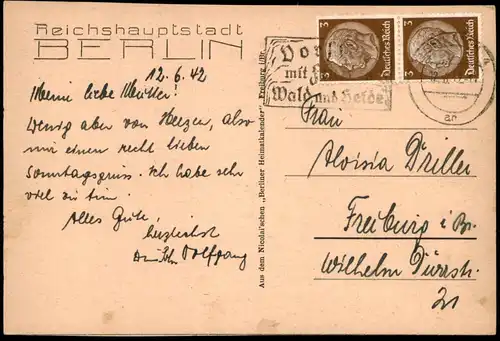 Reichshauptstadt
BERLIN
12.6.42
Meine liebe Mutter!
Wenig aber von Herzen, also
nur einen recht lieben
Sonntagsgruss. Ich habe sehr
viel zu tun.
Alles Gute,
herzlichst
Dein Wolfgang
Aus dem Nicolai'schen „Berliner Heimatkalender“, Freiburg i/Br.
mit
Wald und Heide
3 Deutsches Reich
3 Deutsches Reich
Frau
Aloisia Driller
Freiburg i. Br.
Wilhelm Dürrstr.